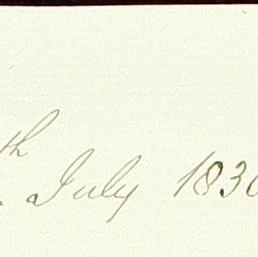 th July 183